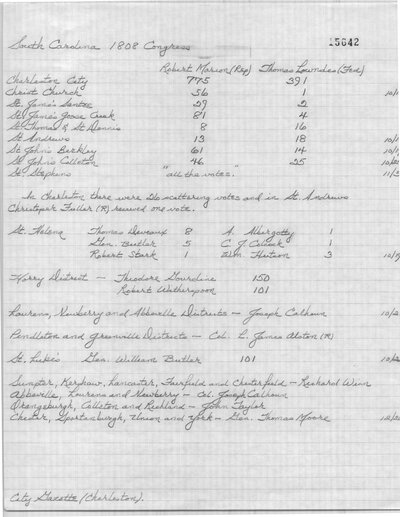 South Carolina 1808 Congress
15642
Robert Marion (Rep) Thomas Lowndes (Fed)
Charleston City 775 391
Christ Church 56 1 10/1
St. James Santee 29 2
St. James Goose Creek 81 4
St. Thomas & St. Dennis 8 16
St. Andrews 13 18
St. John's Berkley 61 14
St. John's Colleton 46 25
St. Stephens " all the votes. " 11/3
In Charleston there were 26 scattering votes and in St. Andrews
Christopher Fuller (R) received one vote.
St. Helena Thomas Deveaux 8 A. Albergotty 1
Gen. Butler 5 C. J. Colcock 1
Robert Stark 1 Wm Hutson 3
Horry District - Theodore Gourdine 150
Robert Witherspoon 101
Laurens, Newberry and Abbeville Districts - Joseph Calhoun
Pendleton and Greenville Districts - Col. L. James Alston (R)
St. Luke's Gen. William Butler 101
Sumpter, Kershaw, Lancaster, Fairfield and Chesterfield - Richard Winn
Abbeville, Laurens and Newberry - Col. Joseph Calhoun
Orangeburgh, Colleton and Richland - John Taylor
Chester, Spartanburgh, Union and York - Gen. Thomas Moore
City Gazette (Charleston).